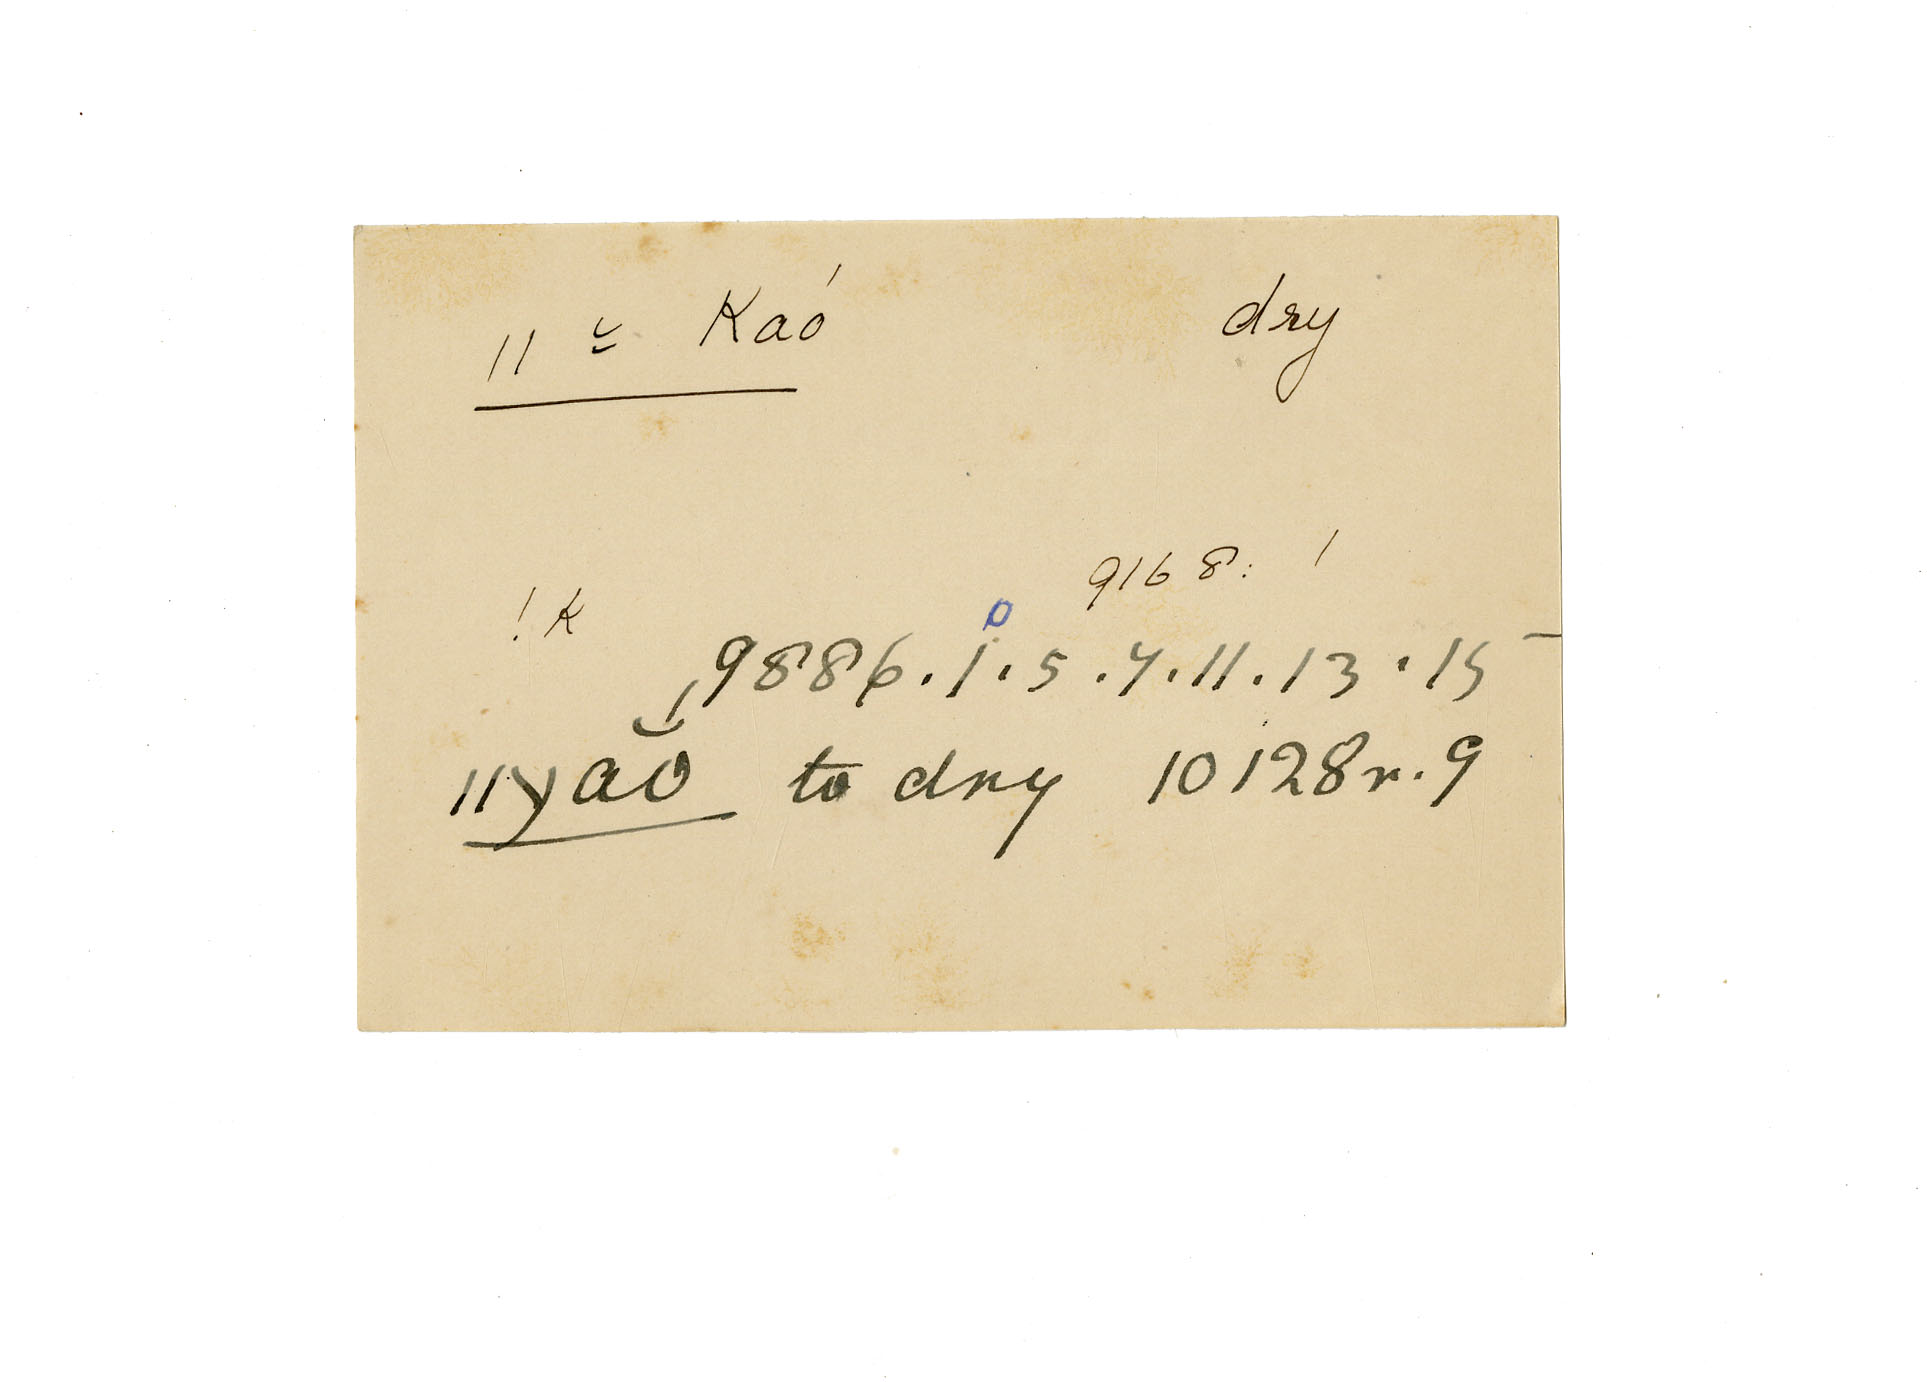 ǁ ⌣ Kaó dry
9168: !
! K
9886.1.5.7.11.13.15
ǁγăó to dry 10128r.9